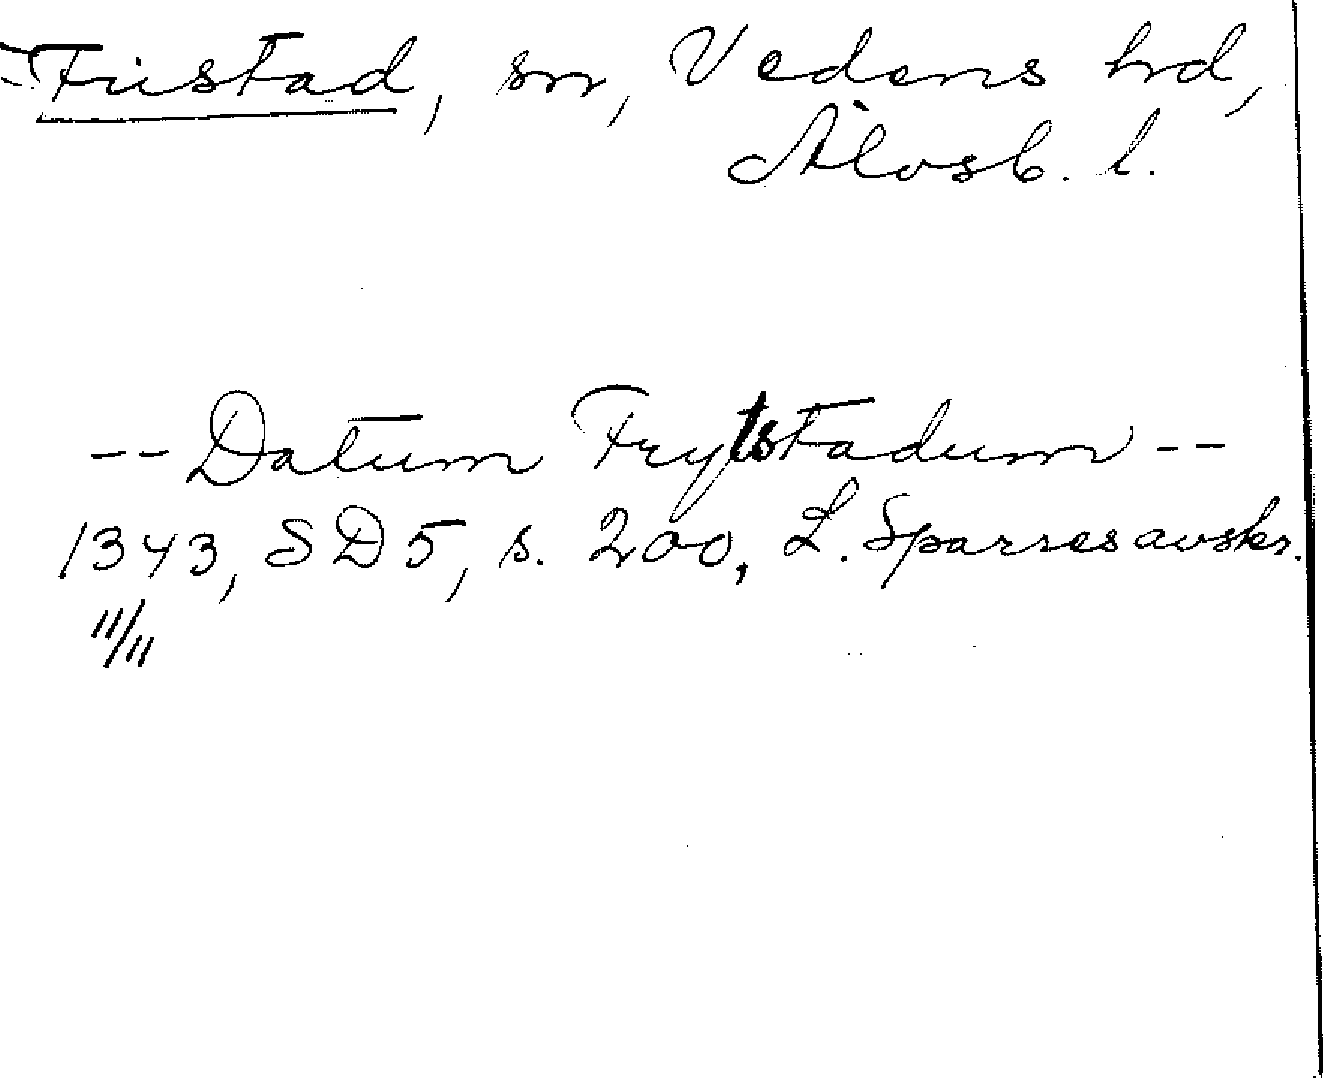 Fristad, sn, Vedens hrd,
Älvsb. l.
-- Datum Frytstadum --
1343, SD5, s. 200, L. Sparres avskr.
11/11